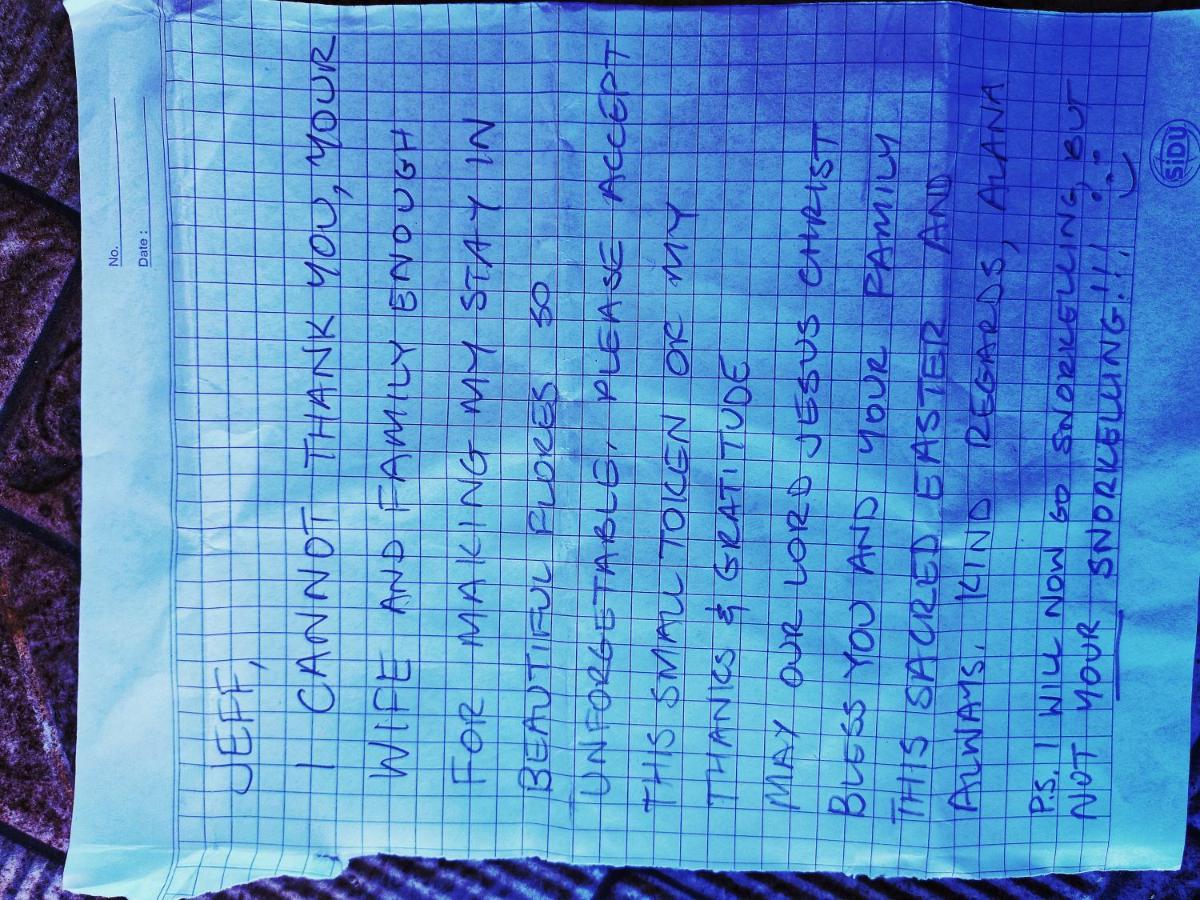 No.
Date :
JEFF,
I CANNOT THANK YOU, YOUR
WIFE AND FAMILY ENOUGH
FOR MAKING MY STAY IN
BEAUTIFUL FLORES SO
UNFORGETABLE. PLEASE ACCEPT
THIS SMALL TOKEN OF MY
THANKS & GRATITUDE
MAY OUR LORD JESUS CHRIST
BLESS YOU AND YOUR FAMILY
THIS SACRED EASTER AND
ALWAYS. KIND REGARDS, ALANA
P.S. I WILL NOW GO SNORKELLING, BUT
NOT YOUR SNORKELLING!!!
SiDU